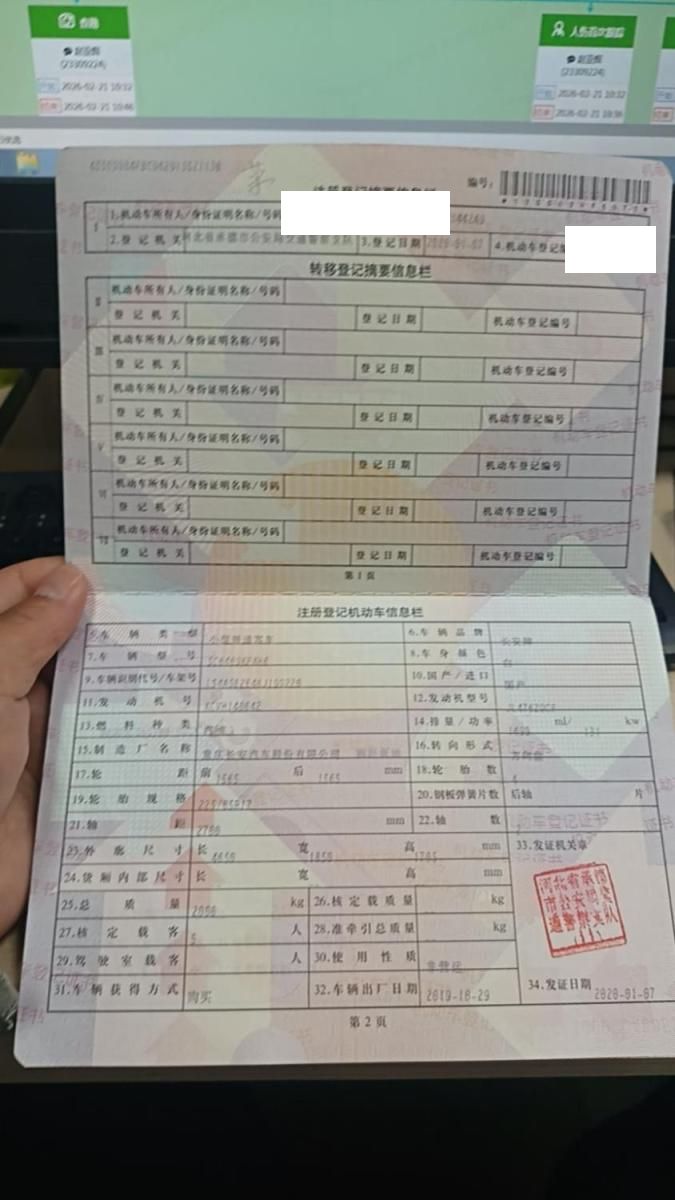 查勘
赵亚辉
(23309224)
开始 2026-02-21 10:12
结束 2026-02-21 10:46
人伤首次跟踪
赵亚辉
(23309224)
开始 2026-02-21 10:12
结束
注册登记摘要信息栏
编号:
I
1.机动车所有人/身份证明名称/号码
2.登记机关 河北省承德市公安局交通警察支队 3.登记日期 2020-01-07 4.机动车登记编
转移登记摘要信息栏
II 机动车所有人/身份证明名称/号码
登记机关 登记日期 机动车登记编号
III 机动车所有人/身份证明名称/号码
登记机关 登记日期 机动车登记编号
IV 机动车所有人/身份证明名称/号码
登记机关 登记日期 机动车登记编号
V 机动车所有人/身份证明名称/号码
登记机关 登记日期 机动车登记编号
VI 机动车所有人/身份证明名称/号码
登记机关 登记日期 机动车登记编号
VII 机动车所有人/身份证明名称/号码
登记机关 登记日期 机动车登记编号
第1页
注册登记机动车信息栏
5.车辆类型 小型普通客车 6.车辆品牌 长安牌
7.车辆型号 8.车身颜色 白
9.车辆识别代号/车架号 10.国产/进口 国产
11.发动机号 12.发动机型号
13.燃料种类 汽油 14.排量/功率 ml/ kw
15.制造厂名称 重庆长安汽车股份有限公司 16.转向形式 方向盘
17.轮距 前 1565 后 1565 mm 18.轮胎数 4
19.轮胎规格 225/65R17 20.钢板弹簧片数 后轴 片
21.轴距 2700 mm 22.轴数 2
23.外廓尺寸 长 4650 宽 1850 高 1705 mm 33.发证机关章
24.货厢内部尺寸 长 宽 高 mm
25.总质量 kg 26.核定载质量 kg
27.核定载客 5 人 28.准牵引总质量 kg
29.驾驶室载客 人 30.使用性质 非营运
31.车辆获得方式 购买 32.车辆出厂日期 2019-10-29 34.发证日期 2020-01-07
第2页